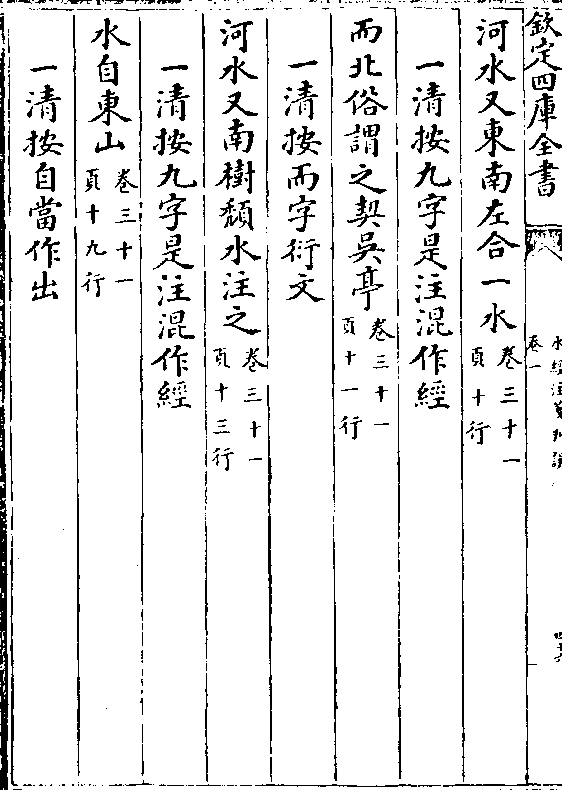 欽定四庫全書
水經注箋刊誤
卷一
河水又東南左合一水卷三十一頁十行
一清按九字是注混作經
而北俗謂之契吳亭卷三十一頁十一行
一清按而字衍文
河水又南樹頽水注之卷三十一頁十三行
一清按九字是注混作經
水自東山卷三十一頁十九行
一清按自當作出